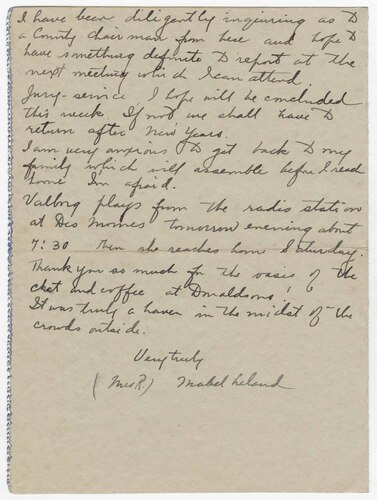 I have been diligently inquiring as to
a County chairman from here and hope to
have something definite to report at the
next meeting which I can attend.
Jury-service I hope will be concluded
this week. If not we shall have to
return after New Years.
I am very anxious to get back to my
family which will assemble before I reach
home I'm afraid.
Valborg plays from the radio station
at Des Moines tomorrow evening about
7:30 then she reaches home Saturday.
Thank you so much for the oasis of the
chat and coffee at Donaldsons!
It was truly a haven in the midst of the
crowds outside.
Very truly
(Mrs R.) Mabel Leland